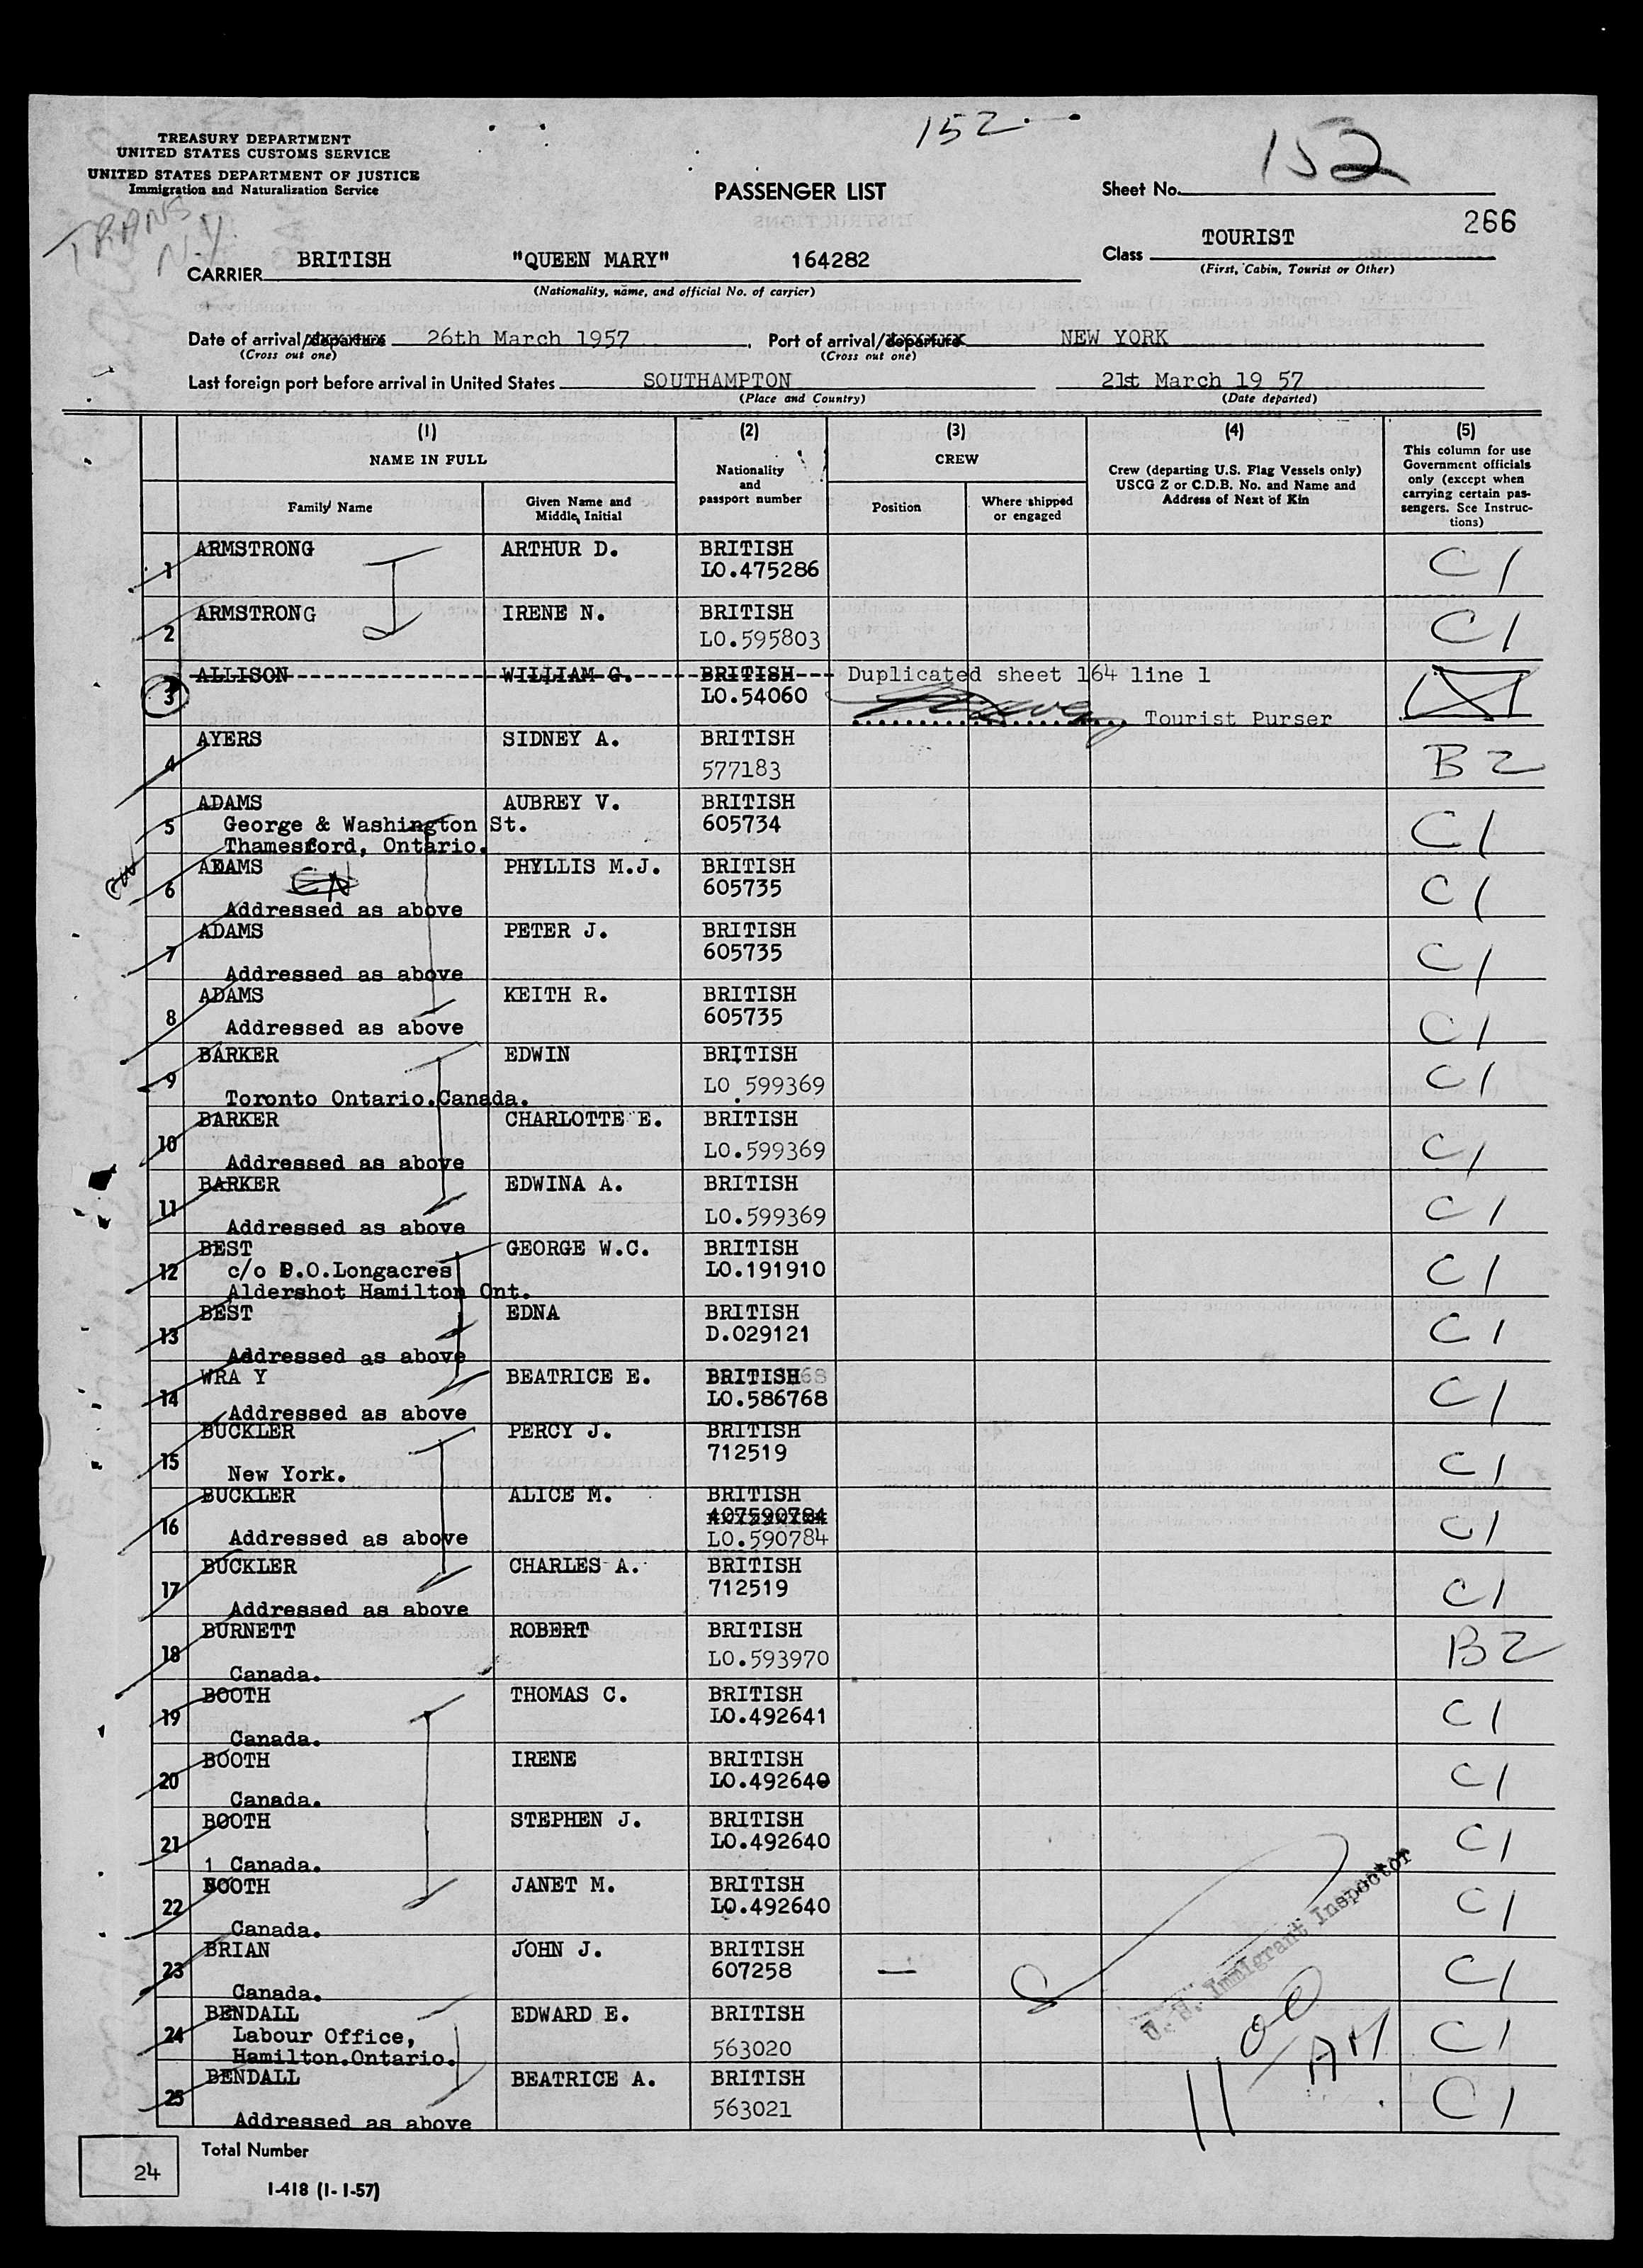 152
152
TREASURY DEPARTMENT
UNITED STATES CUSTOMS SERVICE
UNITED STATES DEPARTMENT OF JUSTICE
Immigration and Naturalization Service
PASSENGER LIST
Sheet No.
266
TRANS
N.Y.
CARRIER BRITISH "QUEEN MARY" 164282
(Nationality, name, and official No. of carrier)
Class TOURIST
(First, Cabin, Tourist or Other)
Date of arrival/departure 26th March 1957. Port of arrival/departure NEW YORK
(Cross out one) (Cross out one)
Last foreign port before arrival in United States SOUTHAMPTON 21st March 19 57
(Place and Country) (Date departed)
(1) (2) (3) (4) (5)
NAME IN FULL
Family Name
Given Name and Middle Initial
Nationality and passport number
CREW
Position
Where shipped or engaged
Crew (departing U.S. Flag Vessels only) USCG Z or C.D.B. No. and Name and Address of Next of Kin
This column for use Government officials only (except when carrying certain passengers. See Instructions)
1 ARMSTRONG ARTHUR D. BRITISH C1
LO.475286
2 ARMSTRONG IRENE N. BRITISH C1
LO.595803
3 ALLISON WILLIAM G. BRITISH Duplicated sheet 164 line 1
LO.54060
Tourist Purser
4 AYERS SIDNEY A. BRITISH B2
577183
5 ADAMS AUBREY V. BRITISH C1
George & Washington St. 605734
Thamesford, Ontario.
6 ADAMS PHYLLIS M.J. BRITISH C1
605735
Addressed as above
7 ADAMS PETER J. BRITISH C1
605735
Addressed as above
8 ADAMS KEITH R. BRITISH C1
605735
Addressed as above
9 BARKER EDWIN BRITISH C1
LO.599369
Toronto Ontario.Canada.
10 BARKER CHARLOTTE E. BRITISH C1
LO.599369
Addressed as above
11 BARKER EDWINA A. BRITISH C1
LO.599369
Addressed as above
12 BEST GEORGE W.C. BRITISH C1
c/o P.O.Longacres LO.191910
Aldershot Hamilton Ont.
13 BEST EDNA BRITISH C1
D.029121
Addressed as above
14 WRA Y BEATRICE E. BRITISH C1
LO.586768
Addressed as above
15 BUCKLER PERCY J. BRITISH C1
712519
New York.
16 BUCKLER ALICE M. BRITISH C1
407590784
Addressed as above LO.590784
17 BUCKLER CHARLES A. BRITISH C1
712519
Addressed as above
18 BURNETT ROBERT BRITISH B2
LO.593970
Canada.
19 BOOTH THOMAS C. BRITISH C1
LO.492641
Canada.
20 BOOTH IRENE BRITISH C1
LO.492640
Canada.
21 BOOTH STEPHEN J. BRITISH C1
LO.492640
1 Canada.
22 BOOTH JANET M. BRITISH C1
LO.492640
Canada.
23 BRIAN JOHN J. BRITISH C1
607258
Canada.
24 BENDALL EDWARD E. BRITISH C1
Labour Office,
563020
Hamilton.Ontario.
25 BENDALL BEATRICE A. BRITISH C1
563021
Addressed as above
U.S. Immigrant Inspector
11 00 AM
24
Total Number
I-418 (1-1-57)